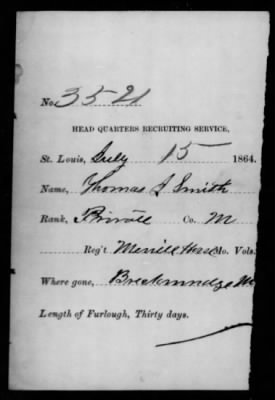 No. 3521
HEAD QUARTERS RECRUITING SERVICE,
St. Louis, July 15 1864.
Name, Thomas S Smith
Rank, Private Co. M
Reg't Merrill Horse Mo. Vols.
Where gone, Breckinridge Mo
Length of Furlough, Thirty days.